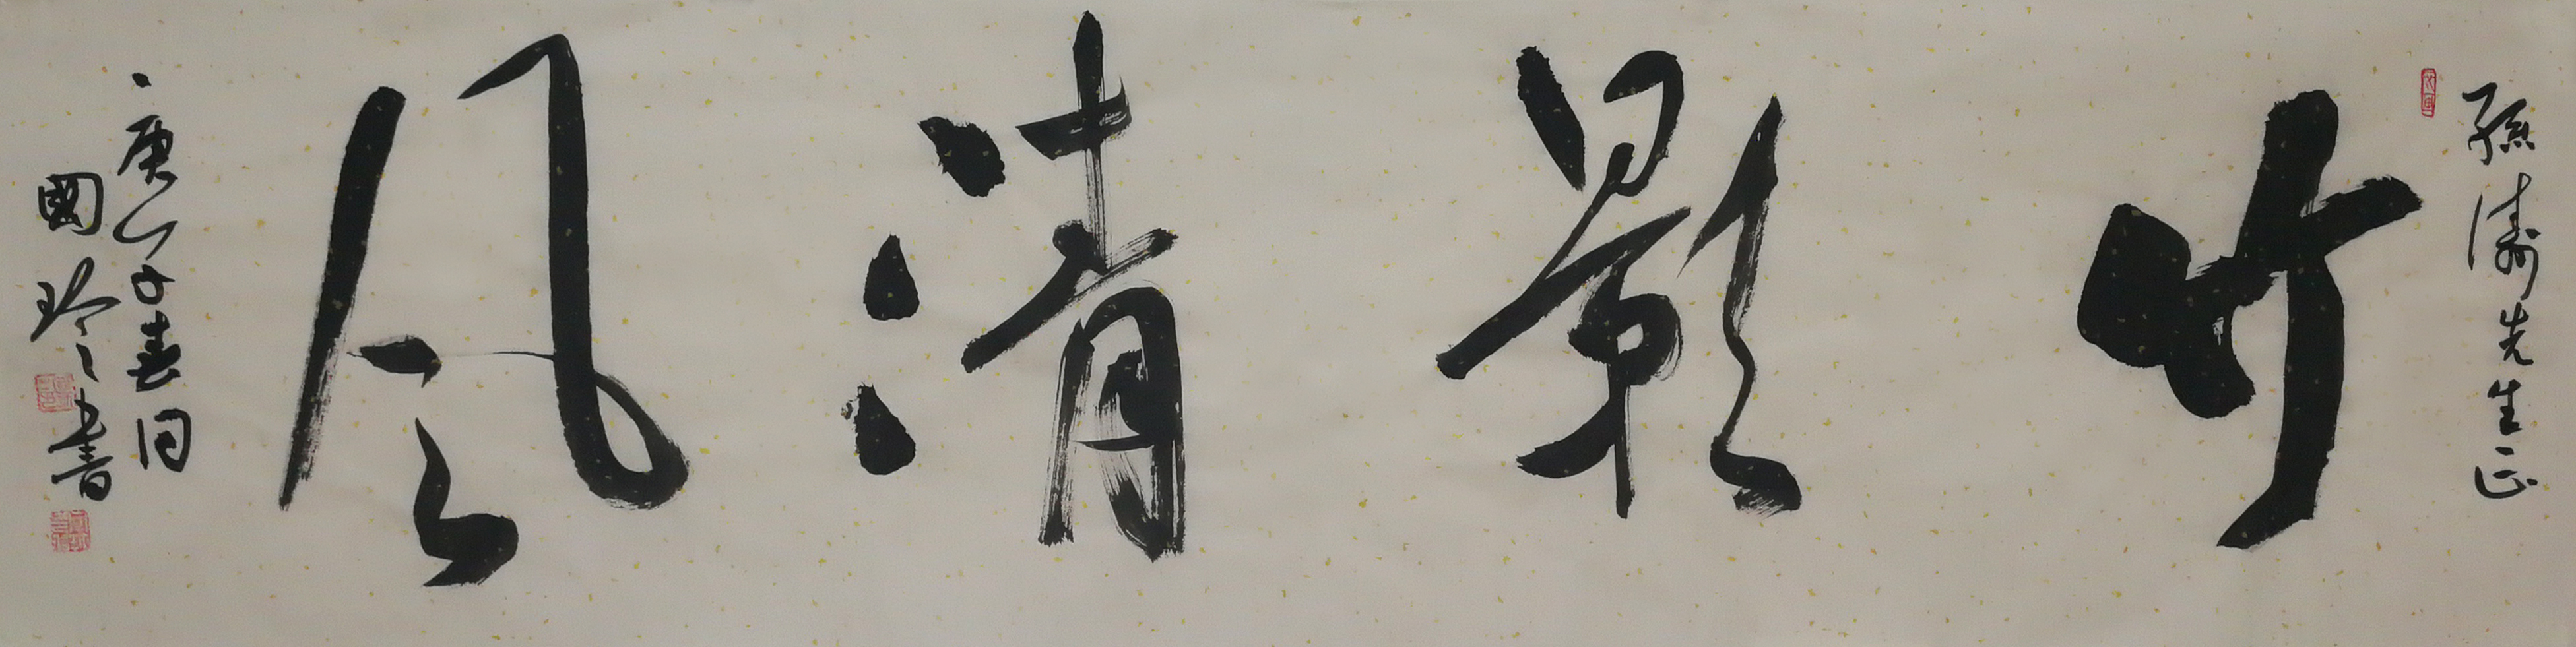 孫濤先生正
竹影清風
庚子春月
國琴書